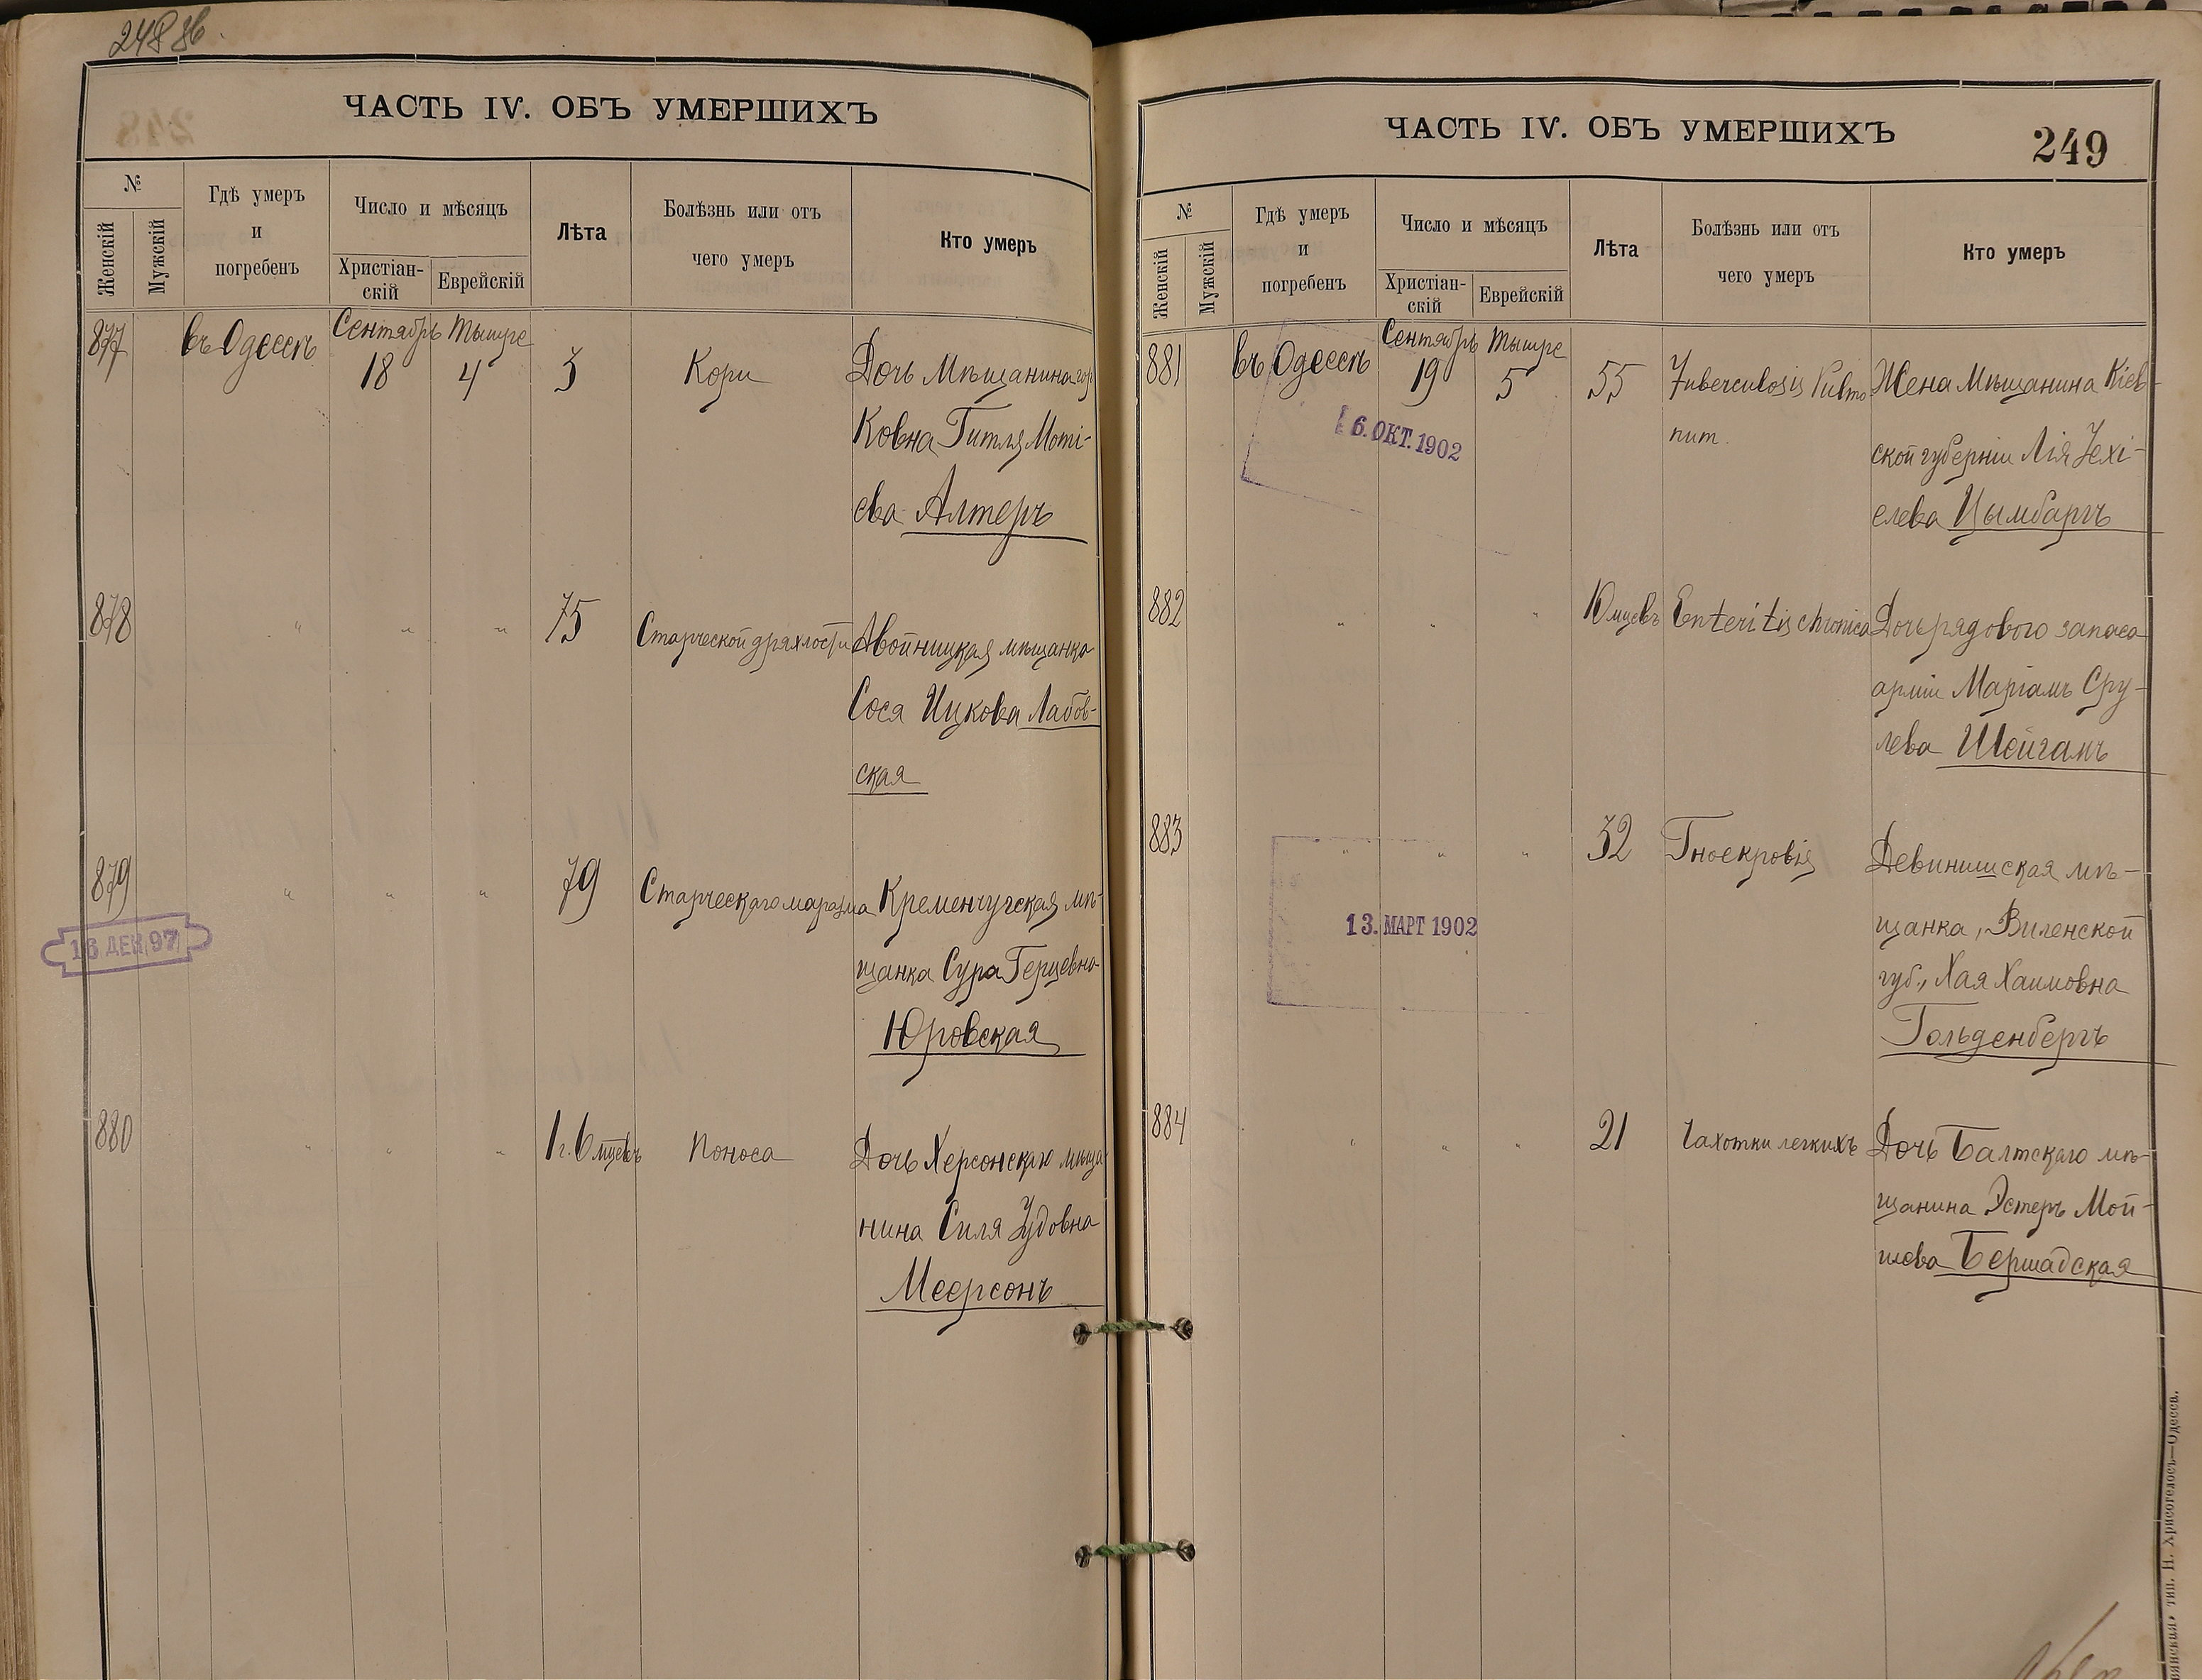 248 об.
ЧАСТЬ IV. ОБЪ УМЕРШИХЪ
№
Женскій
Мужскій
Гдѣ умеръ
и
погребенъ
Число и мѣсяцъ
Христіан-
скій
Еврейскій
Лѣта
Болѣзнь или отъ
чего умеръ
Кто умеръ
877 въ Одессѣ Сентябрь 18 Тышре 4 3 Кори Дочь Мѣщанина гор
Ковна Гитля Моті-
ева Алтеръ
878 " " " 75 Старческой дряхлости Авойницкая мѣщанка
Сося Ицкова Лабов-
ская
879 " " " 79 Старческаго маразма Кременчугская мѣ-
щанка Сура Герцевна
Юровская
16 ДЕК 97
880 " " " 1 г. 6 мцевъ Поноса Дочь Херсонскаго мѣща
нина Силя Удовна
Меерсонъ
ЧАСТЬ IV. ОБЪ УМЕРШИХЪ
249
№
Женскій
Мужскій
Гдѣ умеръ
и
погребенъ
Число и мѣсяцъ
Христіан-
скій
Еврейскій
Лѣта
Болѣзнь или отъ
чего умеръ
Кто умеръ
881 въ Одессѣ Сентябрь 19 Тышре 5 55 Tuberculosis Pulmo Жена Мѣщанина Кіев-
num. ской губерніи Лія Іехі-
елева Цымбаргъ
6. ОКТ. 1902
882 " " " 10 мцевъ Enteritis chronica Дочь рядового запаса
арміи Маріамъ Сру-
лева Шейгамъ
883 " " " 32 Гноекровія Девинишская мѣ-
щанка, Виленской
губ., Хая Хаимовна
Гольденбергъ
13. МАРТ 1902
884 " " " 21 Чахотки легкихъ Дочь Балтскаго мѣ-
щанина Эстеръ Мой-
шева Бершадская
тип. Н. Хрисогелосъ—Одесса.